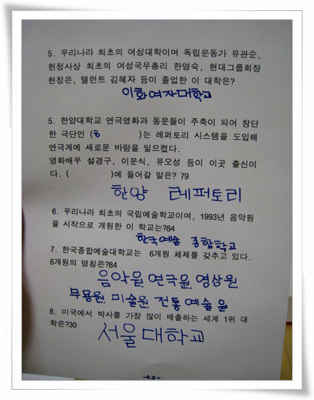 5. 우리나라 최초의 여성대학이며 독립운동가 유관순,
헌정사상 최초의 여성국무총리 한명숙, 현대그룹회장
현정은, 탤런트 김혜자 등이 졸업한 이 대학은?
이화여자대학교
5. 한양대학교 연극영화과 동문들이 주축이 되어 창단
한 극단인 ( )는 레퍼토리 시스템을 도입해
연극계에 새로운 바람을 일으켰다.
영화배우 설경구, 이문식, 유오성 등이 이곳 출신이
다. ( )에 들어갈 말은? 79
한양 레퍼토리
6. 우리나라 최초의 국립예술학교이며, 1993년 음악원
을 시작으로 개원한 이 학교는?84
한국예술 종합학교
7. 한국종합예술대학교는 6개원 체제를 갖추고 있다.
6개원의 명칭은?84
음악원, 연극원, 영상원
무용원, 미술원, 전통예술원
8. 미국에서 박사를 가장 많이 배출하는 세계 1위 대
학은?30
서울대학교